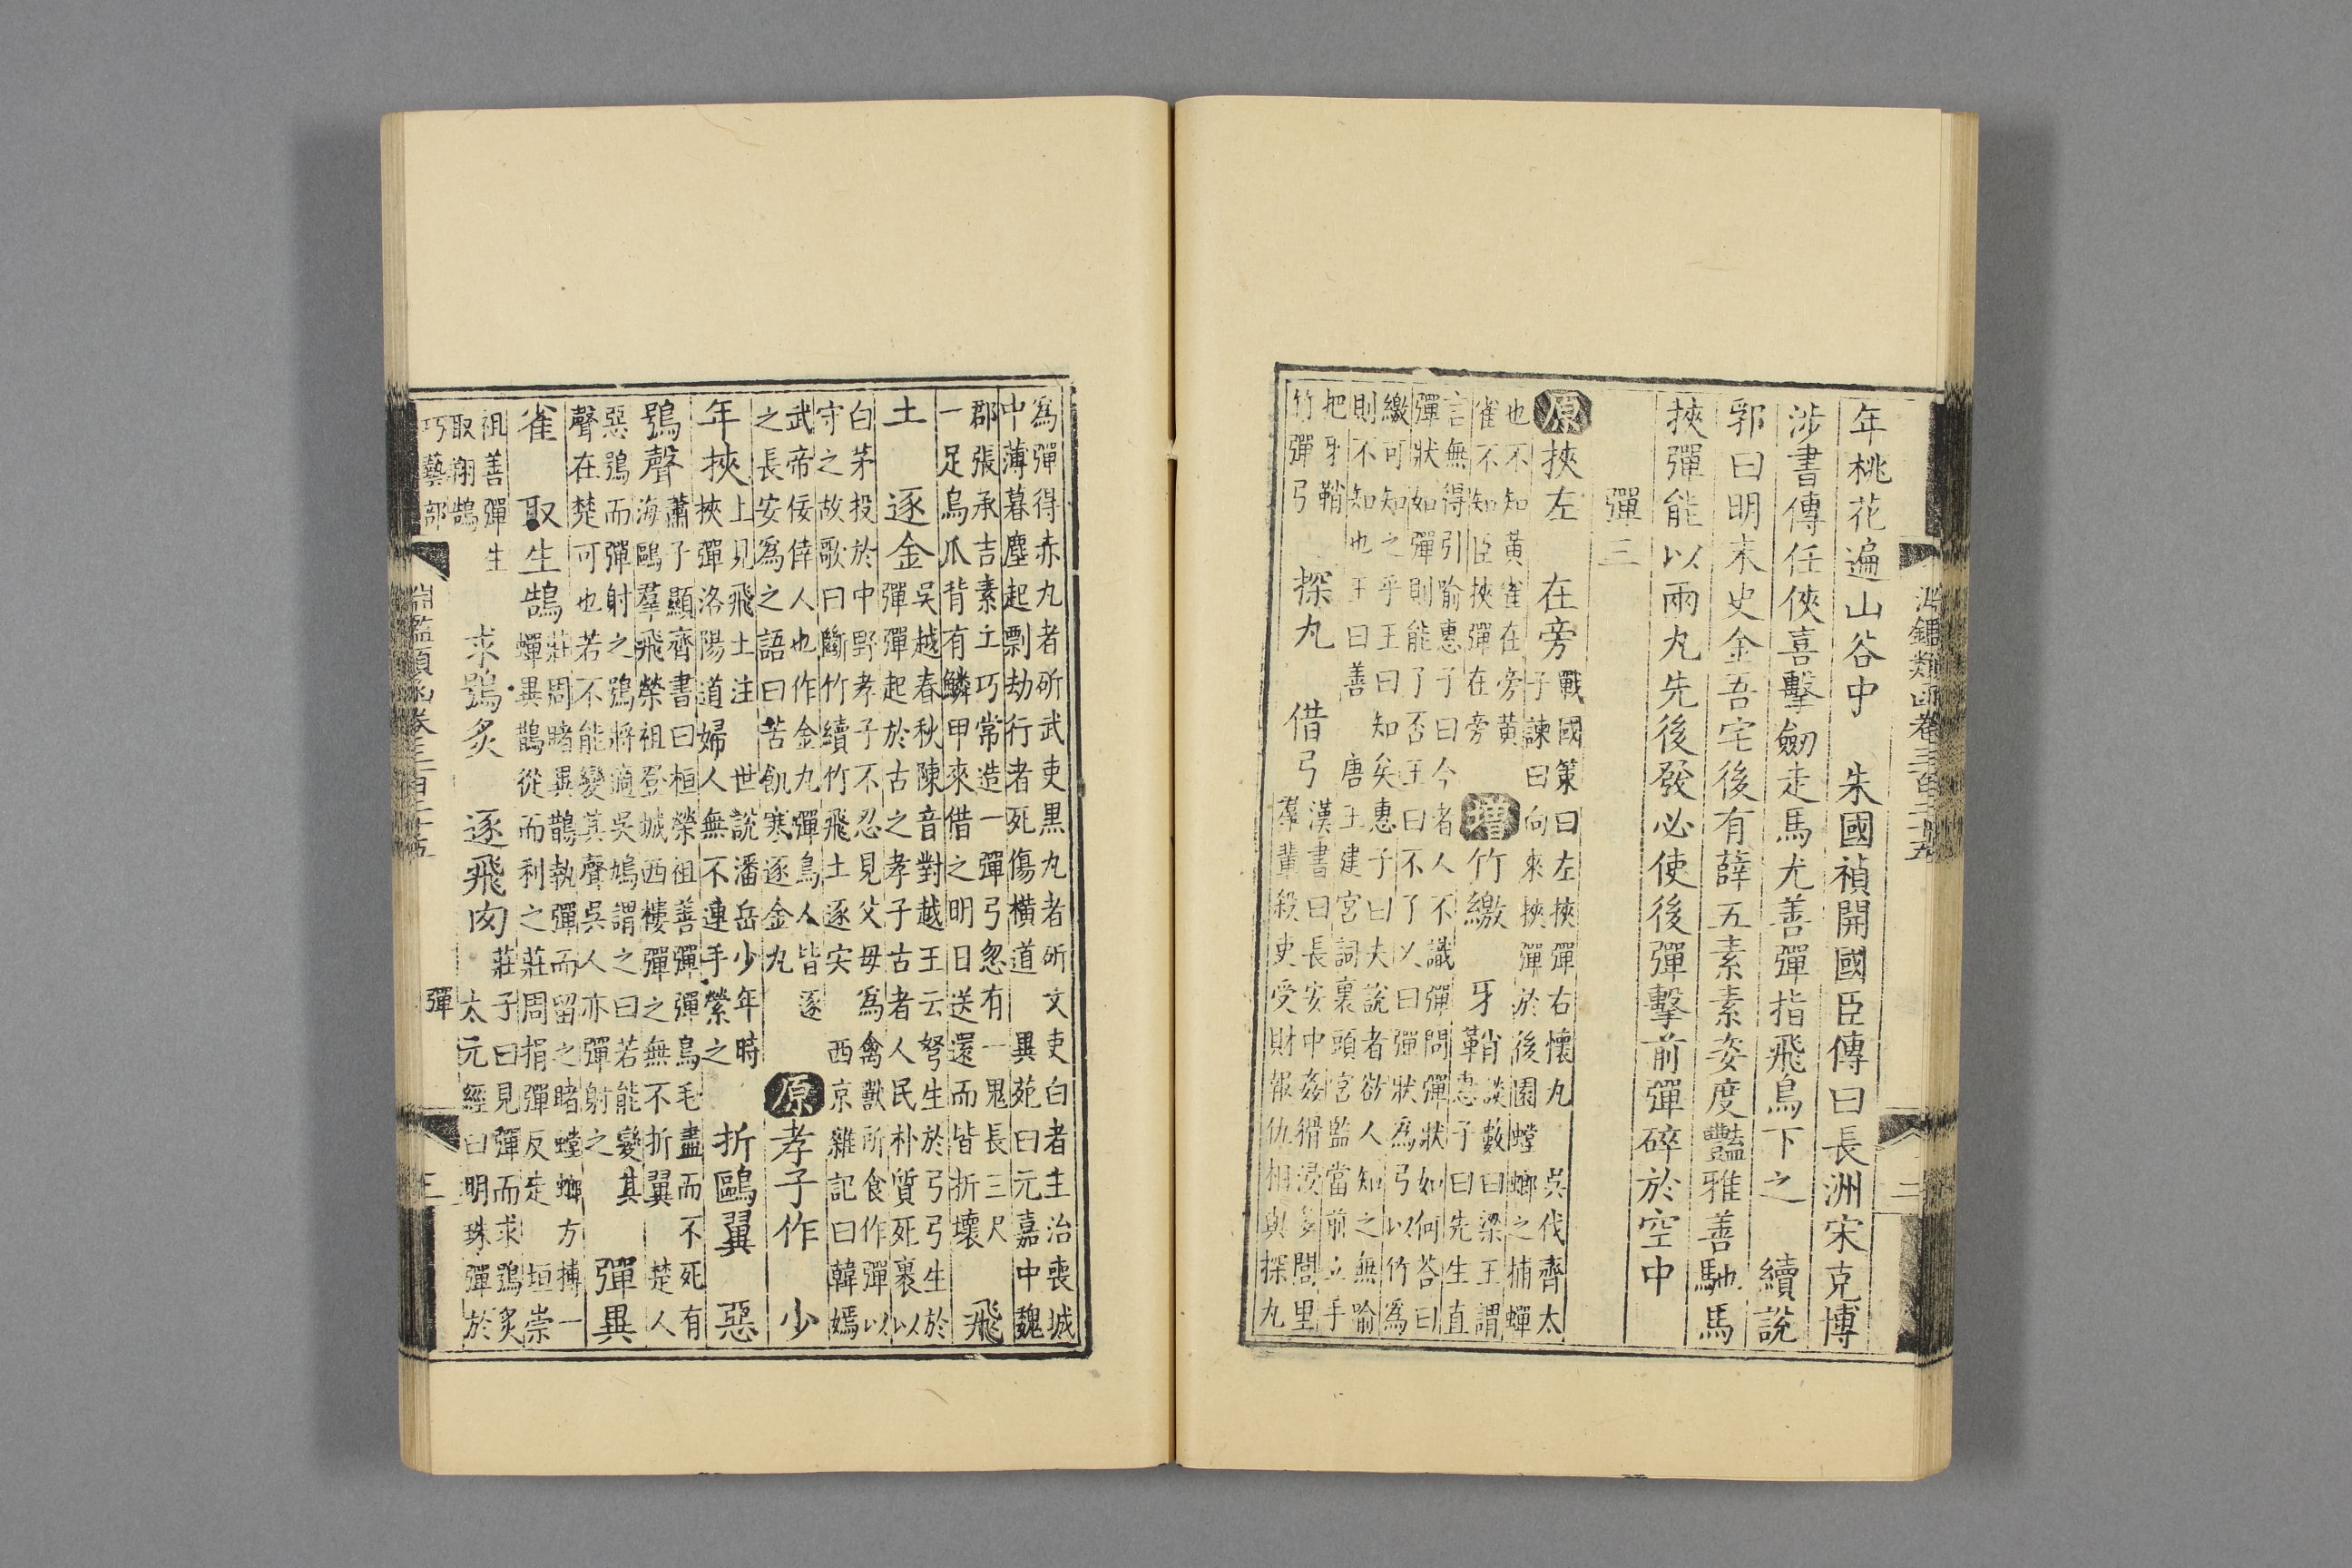 淵鑑類函卷三百二十五
二
年桃花遍山谷中　朱國禎開國臣傳曰長洲宋克博
涉書傳任俠喜擊劒走馬尤善彈指飛鳥下之　續說
郛曰明末史金吾宅後有薛五素素姿度豔雅善馳馬
挾彈能以兩丸先後發必使後彈擊前彈碎於空中
彈三
原挾左　在旁
戰國策曰左挾彈右懷丸　吳伐齊太
子諫曰向來挾彈於後園螳螂之捕蟬
也不知黃雀在旁黃
雀不知臣挾彈在旁
增竹繳　牙鞘
談藪曰梁王謂
惠子曰先生直
言無得引喻惠子曰今者人不識彈問彈狀如何荅曰
彈狀如彈則能了否王曰不了又曰彈狀為弓以竹為
繳可知之乎王曰知矣惠子曰夫說者欲人知之無喻
則不知也王曰善　唐王建宮詞裏頭宮監當前立手
把牙鞘
竹彈弓
探丸　借弓
漢書曰長安中姦猾浸多閭里
羣輩殺吏受財報仇相與探丸
為彈得赤丸者斫武吏黑丸者斫文吏白者主治喪城
中薄暮塵起剽劫行者死傷橫道　異苑曰元嘉中魏
郡張承吉素工巧常造一彈弓忽有一鬼長三尺
一足烏爪背有鱗甲來借之明日送還而皆折壞
飛
土　逐金
吳越春秋陳音對越王云弩生於弓弓生於
彈彈起於古之孝子古者人民朴質死裹以
白茅投於中野孝子不忍見父毋為禽獸所食作彈以
守之故歌曰斷竹續竹飛土逐宍　西京雜記曰韓嫣
武帝佞倖人也作金丸彈鳥人皆逐
之長安為之語曰苦飢寒逐金丸
原孝子作　少
年挾
上見飛土注　世說潘岳少年時
挾彈洛陽道婦人無不連手縈之
折鷗翼　惡
鴞聲
蕭子顯齊書曰桓榮祖善彈彈烏毛盡而不死有
海鷗羣飛榮祖登城西樓彈之無不折翼　楚人
惡鴞而彈射之鴞將適吳鳩謂之曰若能變其
聲在楚可也若不能變其聲吳人亦彈射之
彈異
雀　取生鵠
莊周睹異鵲執彈而留之睹螳螂方搏一
蟬異鵲從而利之莊周捐彈反走　垣崇
祖善彈生
取翔鵠
求鴞炙　逐飛肉
莊子曰見彈而求鴞炙
太元經曰明珠彈於
巧藝部
淵鑑類函卷三百二十五
彈
三